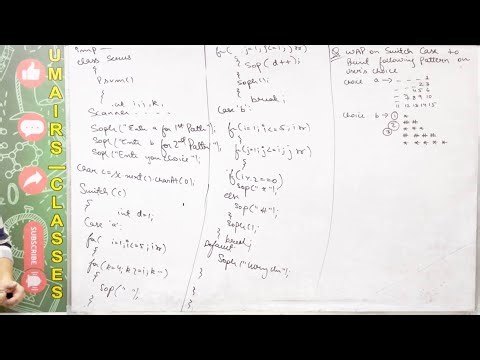 UMAIRS_CLASSES
SUBSCRIBE
imp
class series
{
P v s m()
{
int i, j, k;
Scanner ......
Sopln("Enter a for 1st Pattern");
Sopln("Enter b for 2nd Pattern");
Sopln("Enter your choice");
char c = sc.next().charAt(0);
Switch (c)
{
int d=1;
Case 'a':
for( i=1; i<=5; i++)
{
for(k=4; k>=i; k--)
{
Sop(" ");
}
for( j=1; j<=i; j++)
{
Sop (d++);
}
Sopln();
}
break;
Case 'b':
for(i=1; i<=5; i++)
{
for(j=1; j<=i; j++)
{
if(i%2==0)
Sop("*");
else
Sop("#");
}
Sopln();
}
break;
Default
Sopln("Wrong ch");
}
}
}
Q WAP on Switch Case to
Print following Pattern on
user's choice
choice a → - - - - 1
- - - 2 3
- - 4 5 6
- 7 8 9 10
11 12 13 14 15
choice b → 1 *
2
3